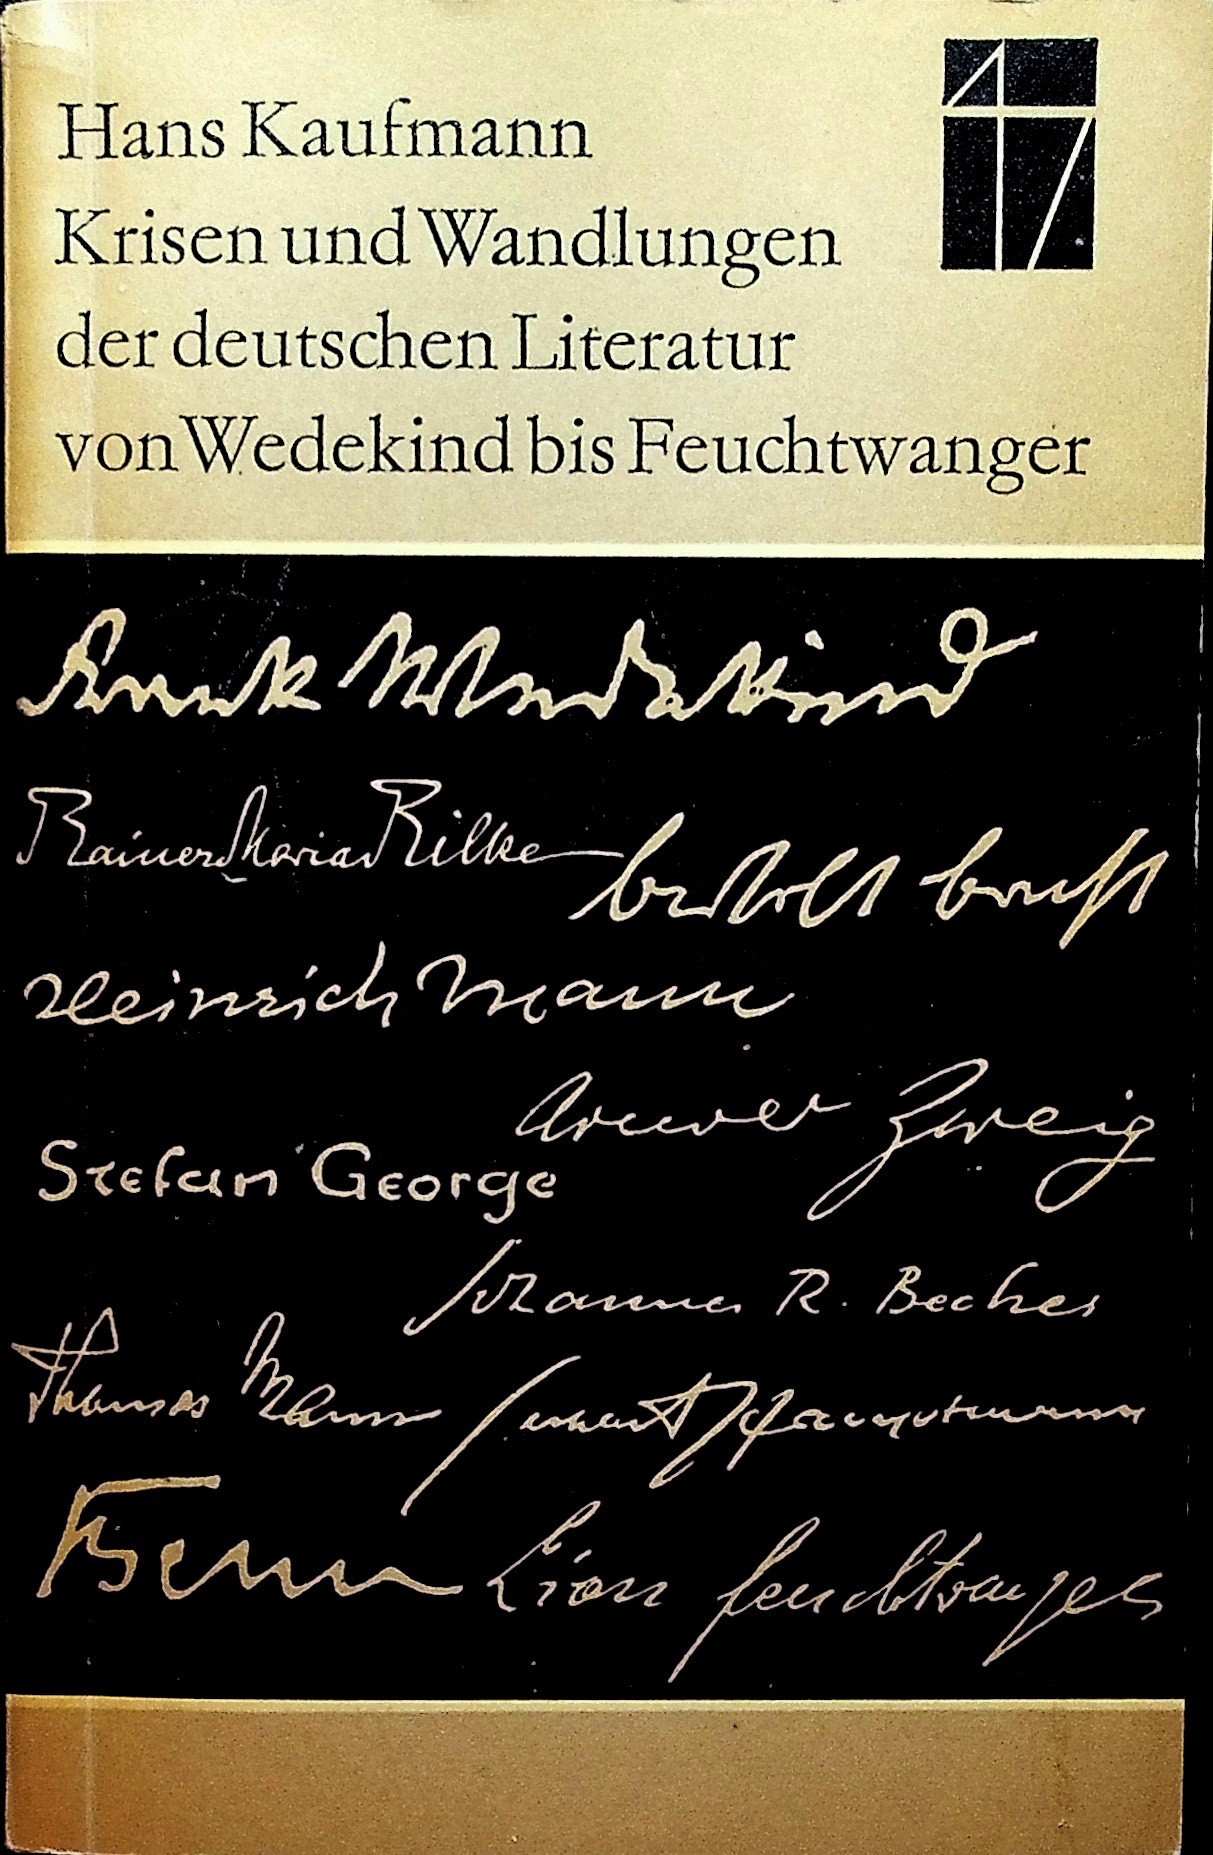 Hans Kaufmann
17
Krisen und Wandlungen
der deutschen Literatur
von Wedekind bis Feuchtwanger
Frank Wedekind
Rainer Maria Rilke
bertolt brecht
Heinrich Mann
Arnold Zweig
Stefan George
Johannes R. Becher
Thomas Mann
Gerhart Hauptmann
Benn
Lion Feuchtwanger